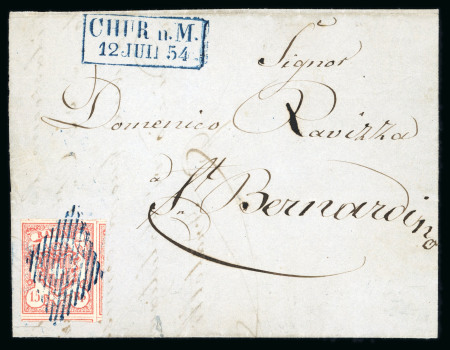 CHUR n. M.
12 JULI 54
Signor
Domenico Ravizza
à St Bernardino
15